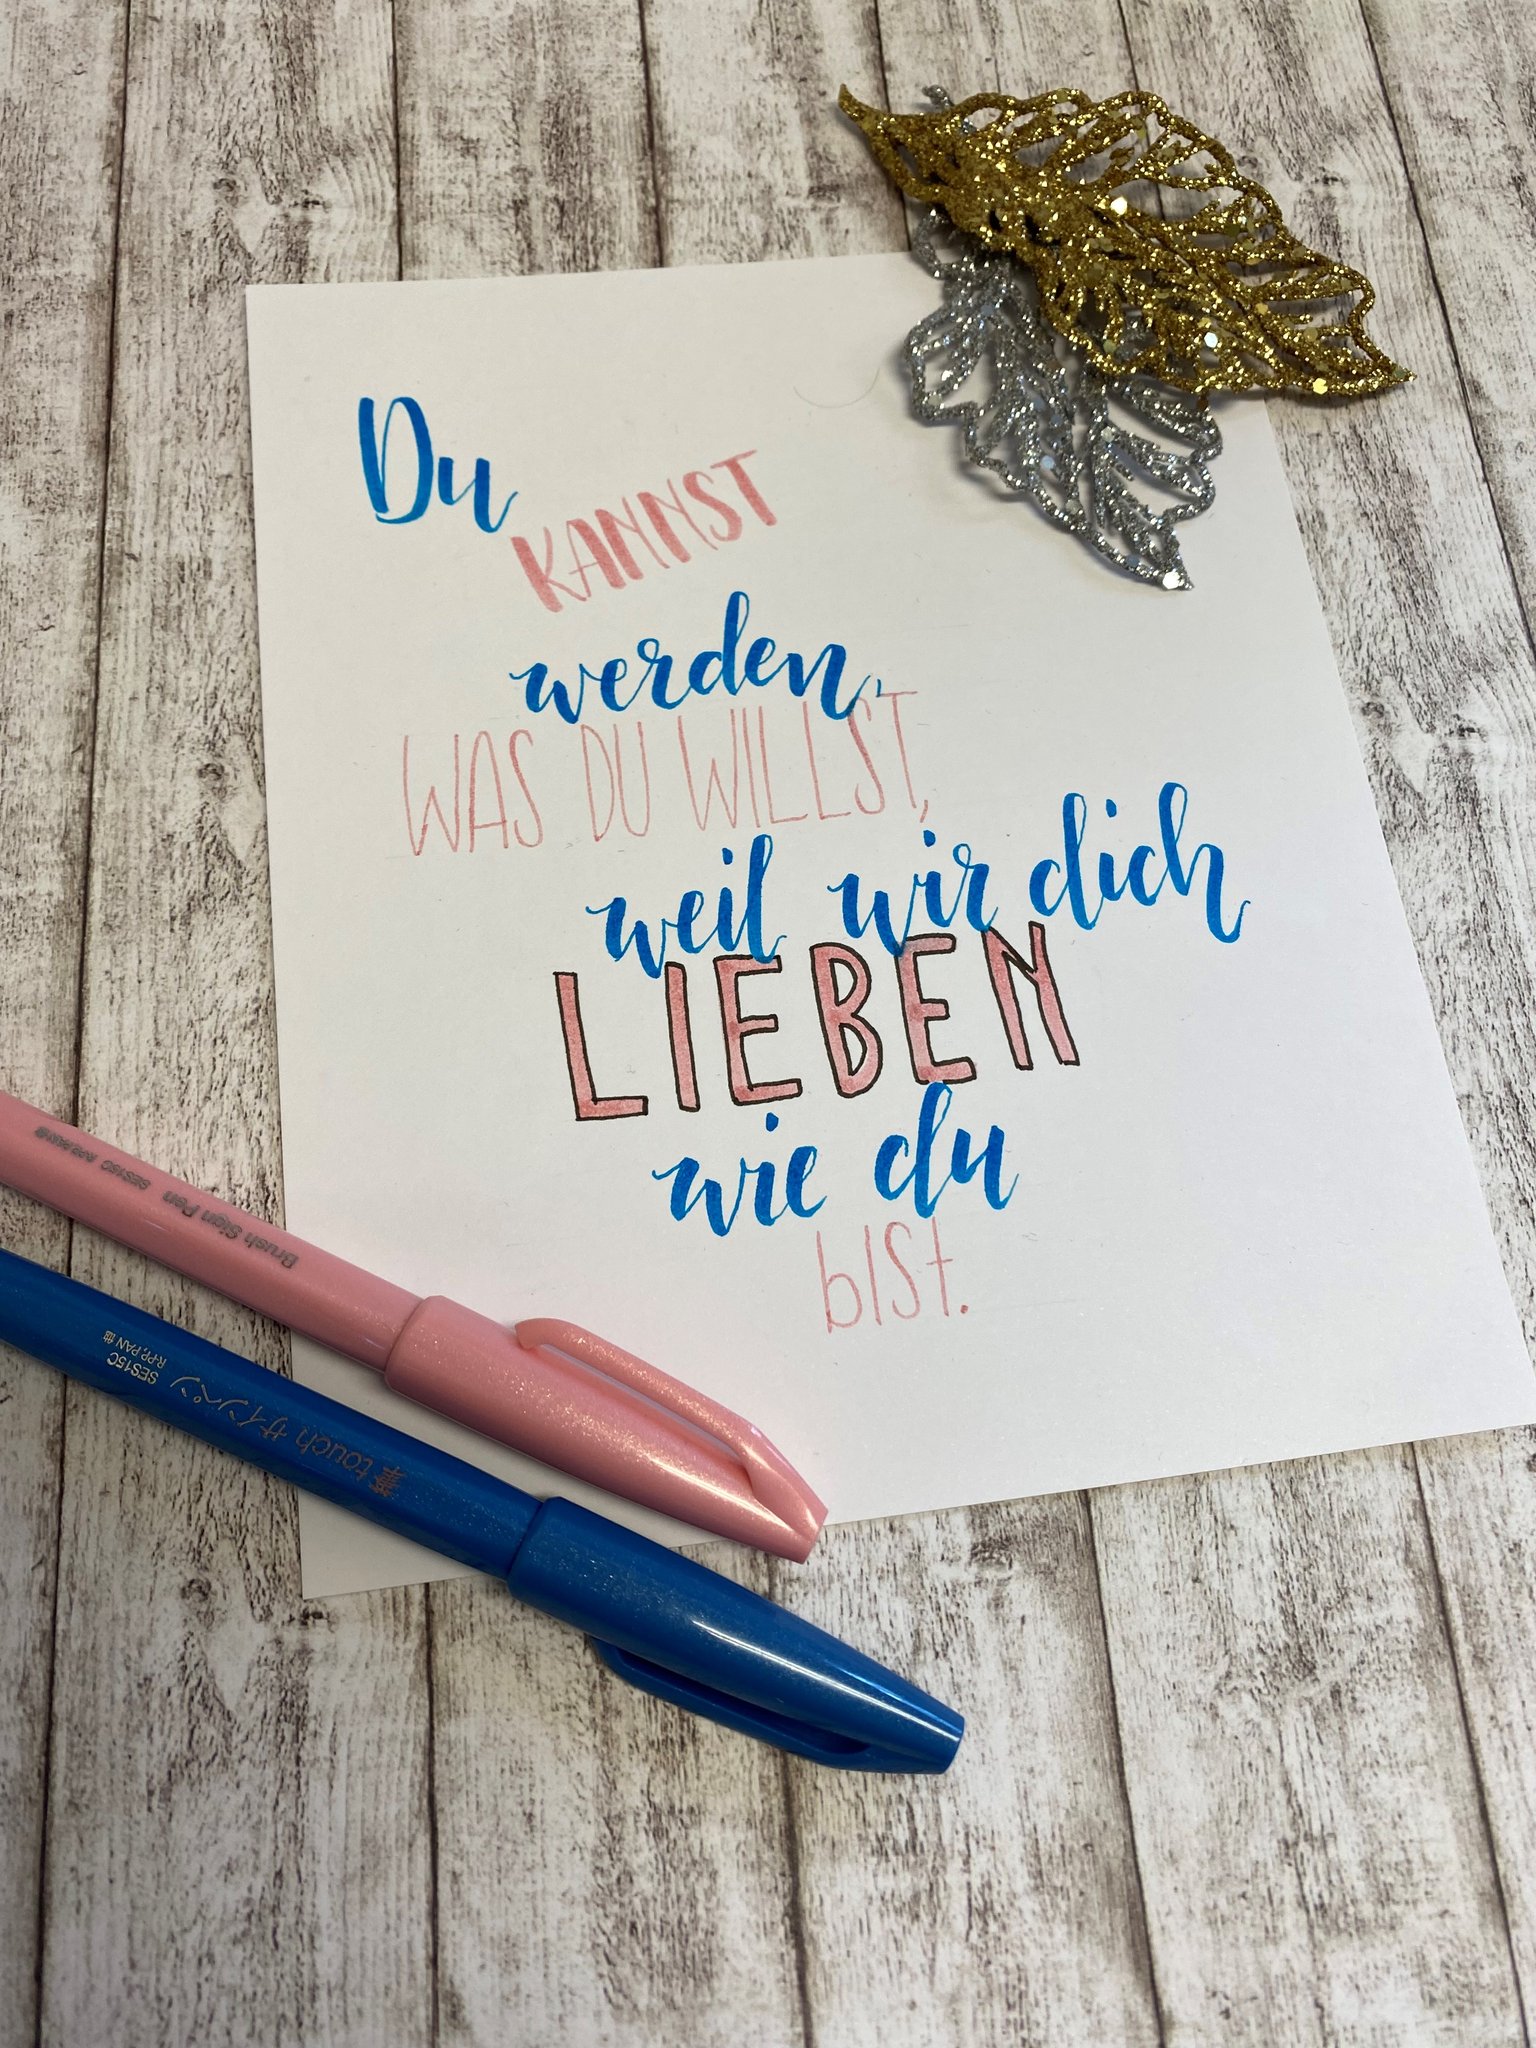 Du
KANNST
werden,
WAS DU WILLST,
weil wir dich
LIEBEN
wie du
bist.
Brush Sign Pen SES15C R-PP,PAN 能
筆touch サインペン SES15C
R-PP,PAN 能